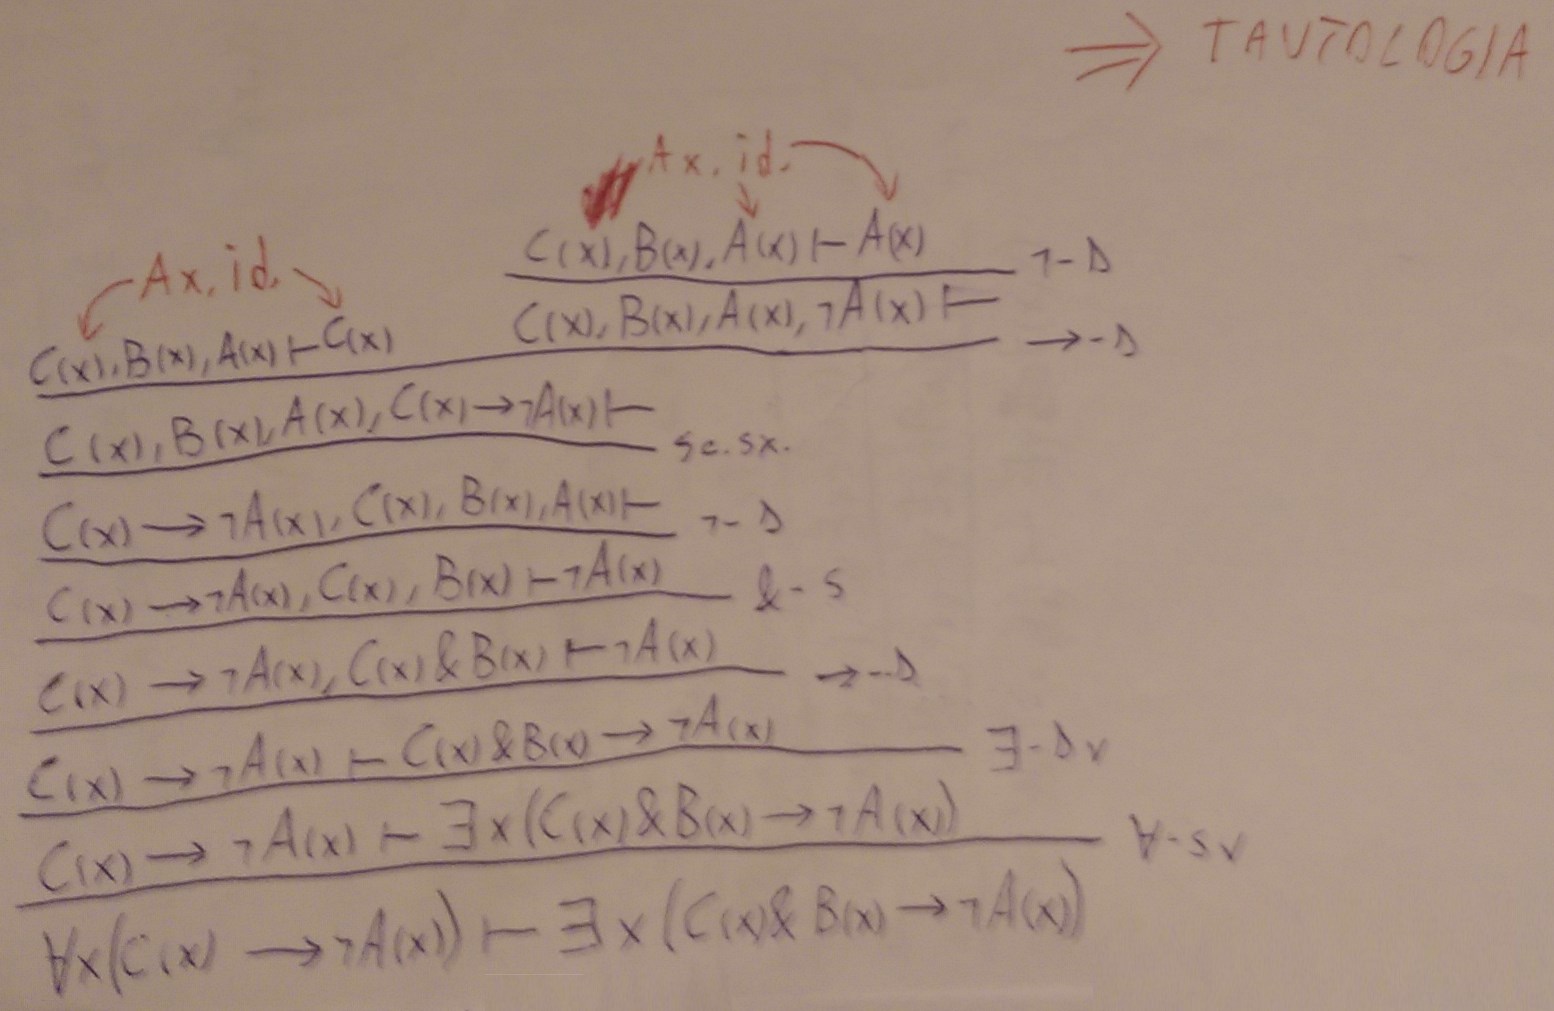 ⇒ TAUTOLOGIA
Ax. id.
C(x), B(x), A(x) ⊢ A(x) ¬-D
Ax. id.
C(x), B(x), A(x), ¬A(x) ⊢
C(x), B(x), A(x) ⊢ C(x) →-D
C(x), B(x), A(x), C(x) → ¬A(x) ⊢
sc. sx.
C(x) → ¬A(x), C(x), B(x), A(x) ⊢ ¬-D
C(x) → ¬A(x), C(x), B(x) ⊢ ¬A(x) &-S
C(x) → ¬A(x), C(x) & B(x) ⊢ ¬A(x) →-D
C(x) → ¬A(x) ⊢ C(x) & B(x) → ¬A(x) ∃-Dv
C(x) → ¬A(x) ⊢ ∃x(C(x) & B(x) → ¬A(x)) ∀-Sv
∀x(C(x) → ¬A(x)) ⊢ ∃x(C(x) & B(x) → ¬A(x))